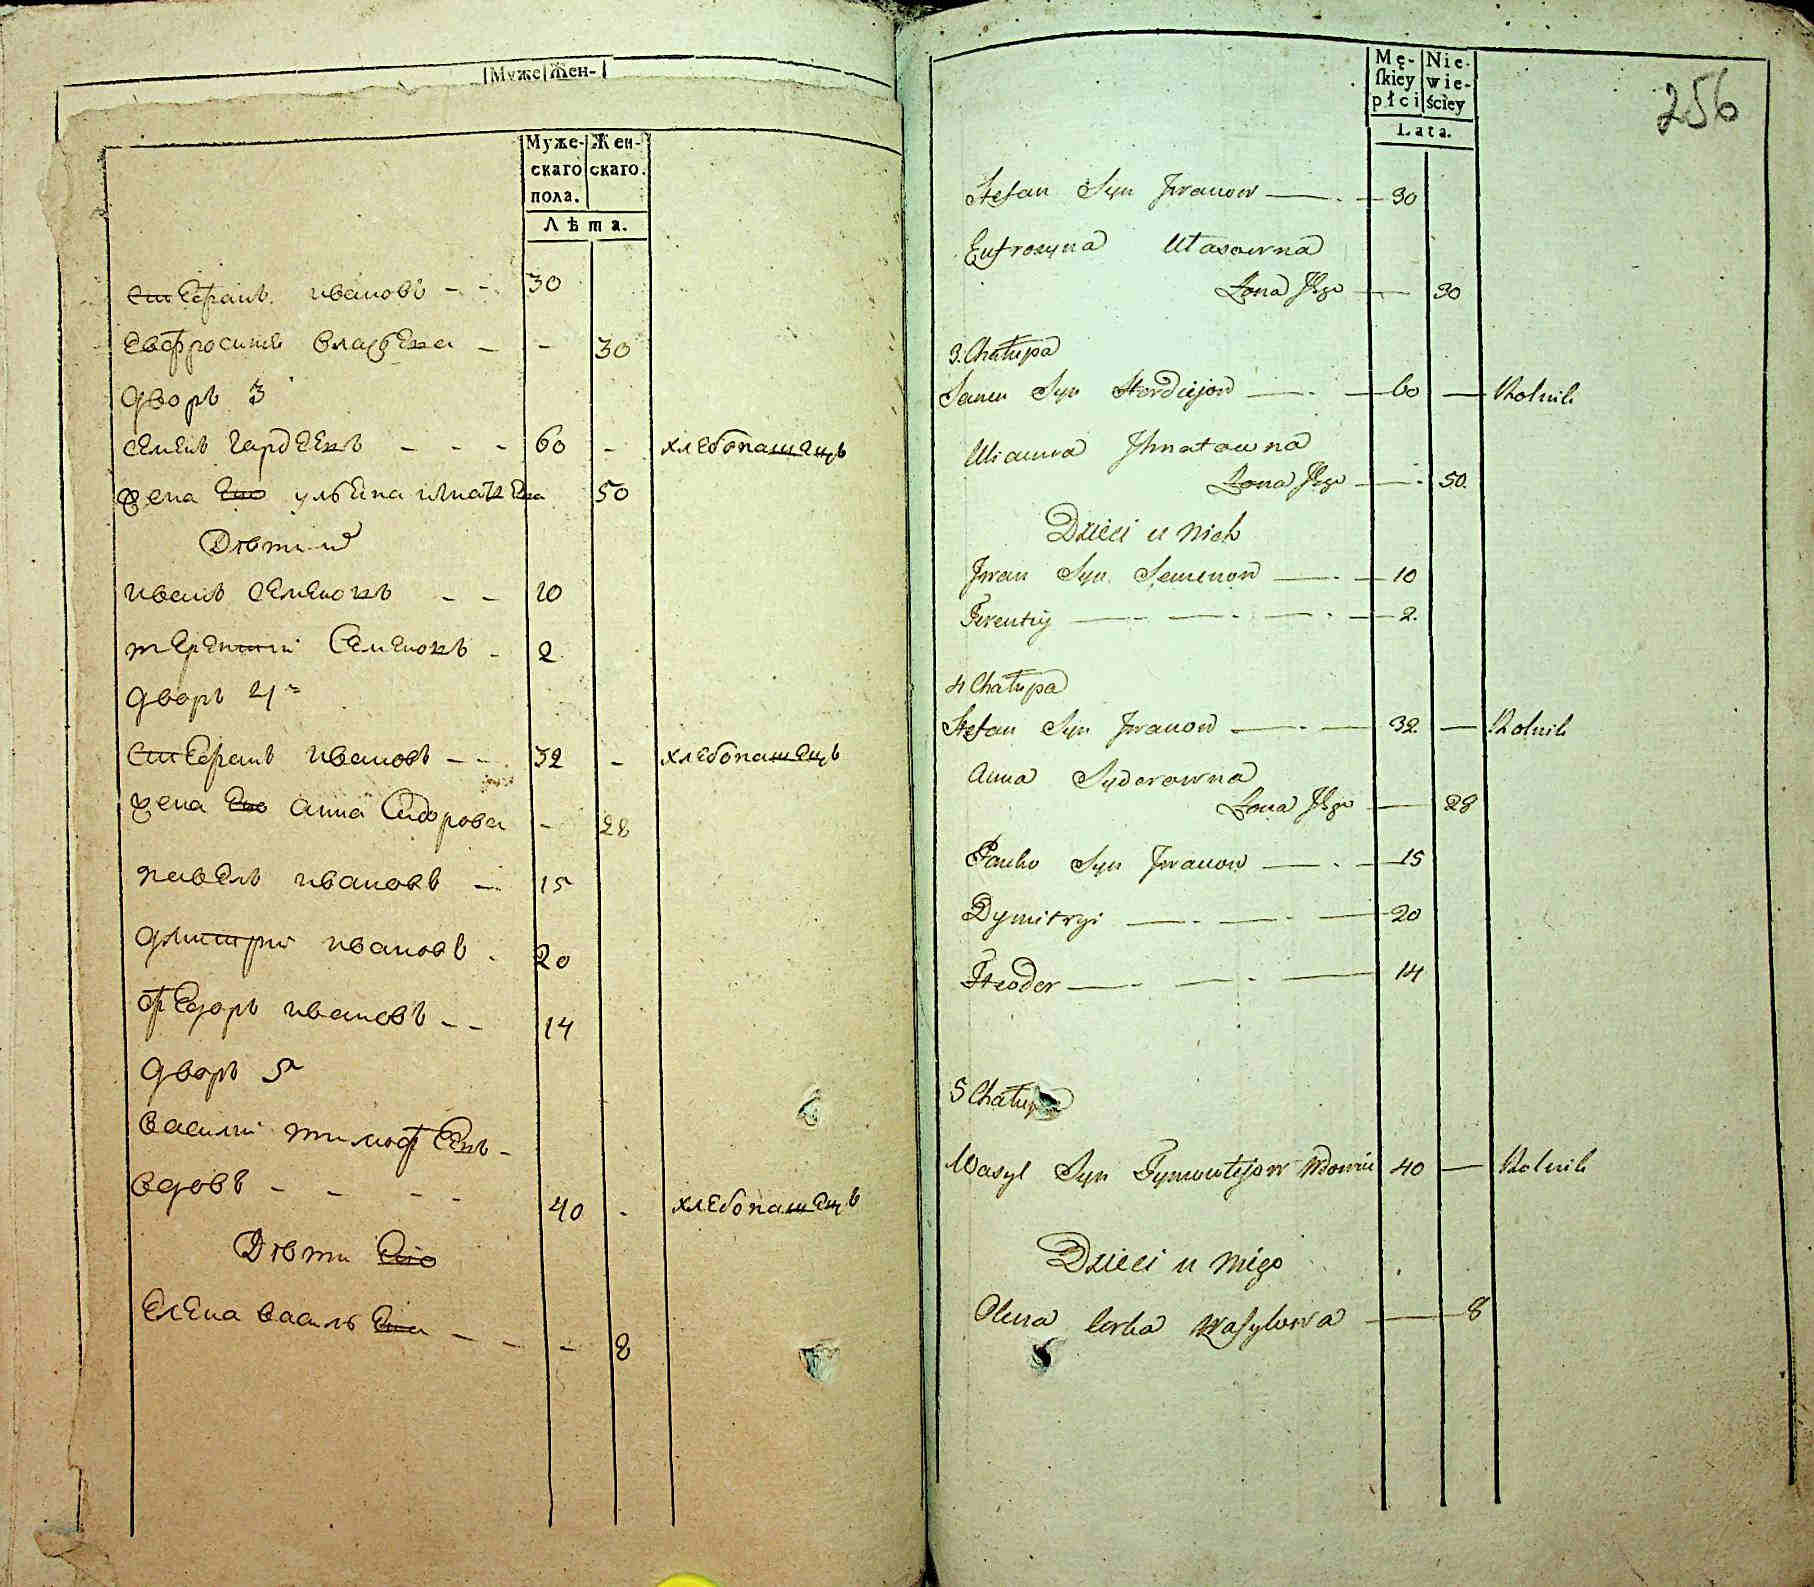 Муже Жен-
Муже- Жен-
скаго скаго.
пола.
Лѣта.
Стефанъ Ивановъ - - 30
Евфросинiя Власева - - 30
Дворъ 3
Семенъ Гордеевъ - - - 60 - хлебопашецъ
Жена Ево Ульяна Игнатева 50
Дѣти и
Иванъ Семеновъ - - 10
Терентий Семеновъ - 2
Дворъ 4
Стефанъ Ивановъ - - 32 - хлебопашецъ
Жена Ево Анна Сидорова - 28
Павелъ Ивановъ - 15
Дмитрий Ивановъ - 20
Федоръ Ивановъ - - 14
Дворъ 5
Василий Тимофеевъ -
вдовъ - - - - 40 - хлебопашецъ
Дѣти Ево
Елена Василь Ева - - - 8
256
Mę- Nie-
ſkiey wie-
płci ściey
Lata.
Stefan Syn Iwanow — 30
Eufrozyna Własowna
Żona Jego — 30
3. Chałupa
Semen Syn Hordiejow — 60 — Rolnik
Ulianna Ihnatowna
Żona Jego — 50.
Dzieci u nich
Iwan Syn Semenow — 10
Terentiy — 2.
4 Chałupa
Stefan Syn Iwanow — 32 — Rolnik
Anna Sydorowna
Żona Jego — 28
Pawło Syn Iwanow — 15
Dymitryi — 20
Fteodor — 14
5 Chałupa
Wasyl Syn Tymoutejow Wdowiec 40 — Rolnik
Dzieci u niego
Olena Corka Wasylowa — 8